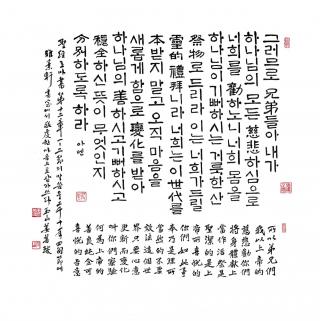 그러므로 兄弟들아 내가
하나님의 모든 慈悲하심으로
너희를 勸하노니 너희 몸을
하나님이 기뻐하시는 거룩한 산
祭物로 드리라 이는 너희가 드릴
靈的 禮拜니라 너희는 이 世代를
本받지 말고 오직 마음을
새롭게 함으로 變化를 받아
하나님의 善하시고 기뻐하시고
穩全하신 뜻이 무엇인지
分別하도록 하라 아멘
所以弟兄們
我以上帝的
慈悲勸你們
將身體獻上
當作活祭是
聖潔的是上
帝所喜悅的
你們如此事
奉乃是理所
當然的不要
效法這個世
界只要心意
更新而變化
叫你們察驗
何為上帝的
善良純全可
喜悅的旨意
聖經 로마書 第十二章 一、二節의 말씀